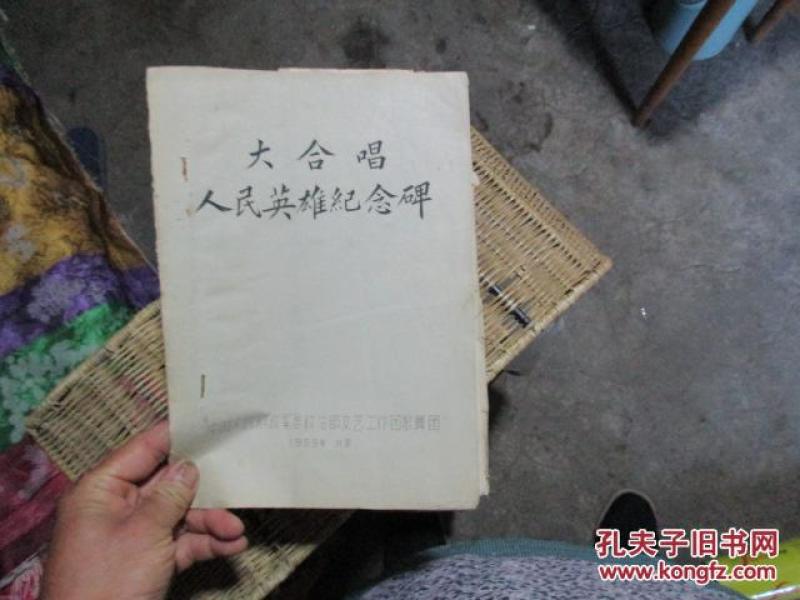 大合唱
人民英雄紀念碑
政治部文艺工作团歌舞团
1959年
孔夫子旧书网
www.kongfz.com